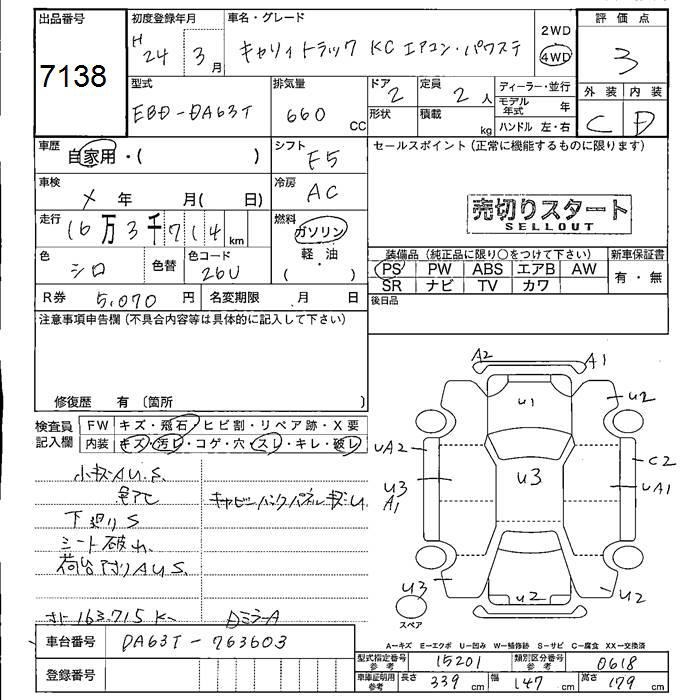 出品番号
7138
初度登録年月
H 24年 3月
車名・グレード
キャリィトラック KC エアコン・パワステ
2WD
4WD
評価点
3
外装 内装
C D
型式
EBD-DA63T
排気量
660 CC
ドア
2
形状
定員
2人
積載
kg
ディーラー・並行
モデル年式 年
ハンドル 左・右
車歴
自家用・( )
シフト
F5
セールスポイント(正常に機能するものに限ります)
売切りスタート
SELLOUT
車検
メ 年 月( 日)
冷房
AC
走行
16万3千714km
燃料
ガソリン
軽・油
( )
色
シロ
色替
色コード
26U
装備品(純正品に限り○をつけて下さい)
PS PW ABS エアB AW
SR ナビ TV カワ
新車保証書
有・無
R券 5,070円
名変期限 月 日
後日品
注意事項申告欄(不具合内容等は具体的に記入して下さい)
修復歴 有〔箇所
検査員記入欄
FW キズ・飛石・ヒビ割・リペア跡・X要
内装 キズ・汚レ・コゲ・穴・スレ・キレ・破レ
小キズAU.S.
下廻りS
シート破れ
荷台 AUS
163.715K
DミラーA
A2 A1
U1
U2
UA2
C2
U3
U3
A1
UA1
U3
U2
U2
スペア
A―キズ E―エクボ U―凹み W―補修跡 S―サビ C―腐食 XX―交換済
車台番号
DA63T-763603
登録番号
型式指定番号 参考
15201
類別区分番号 参考
0618
車庫証明用 参考
長さ 339 cm
幅 147 cm
高さ 179 cm